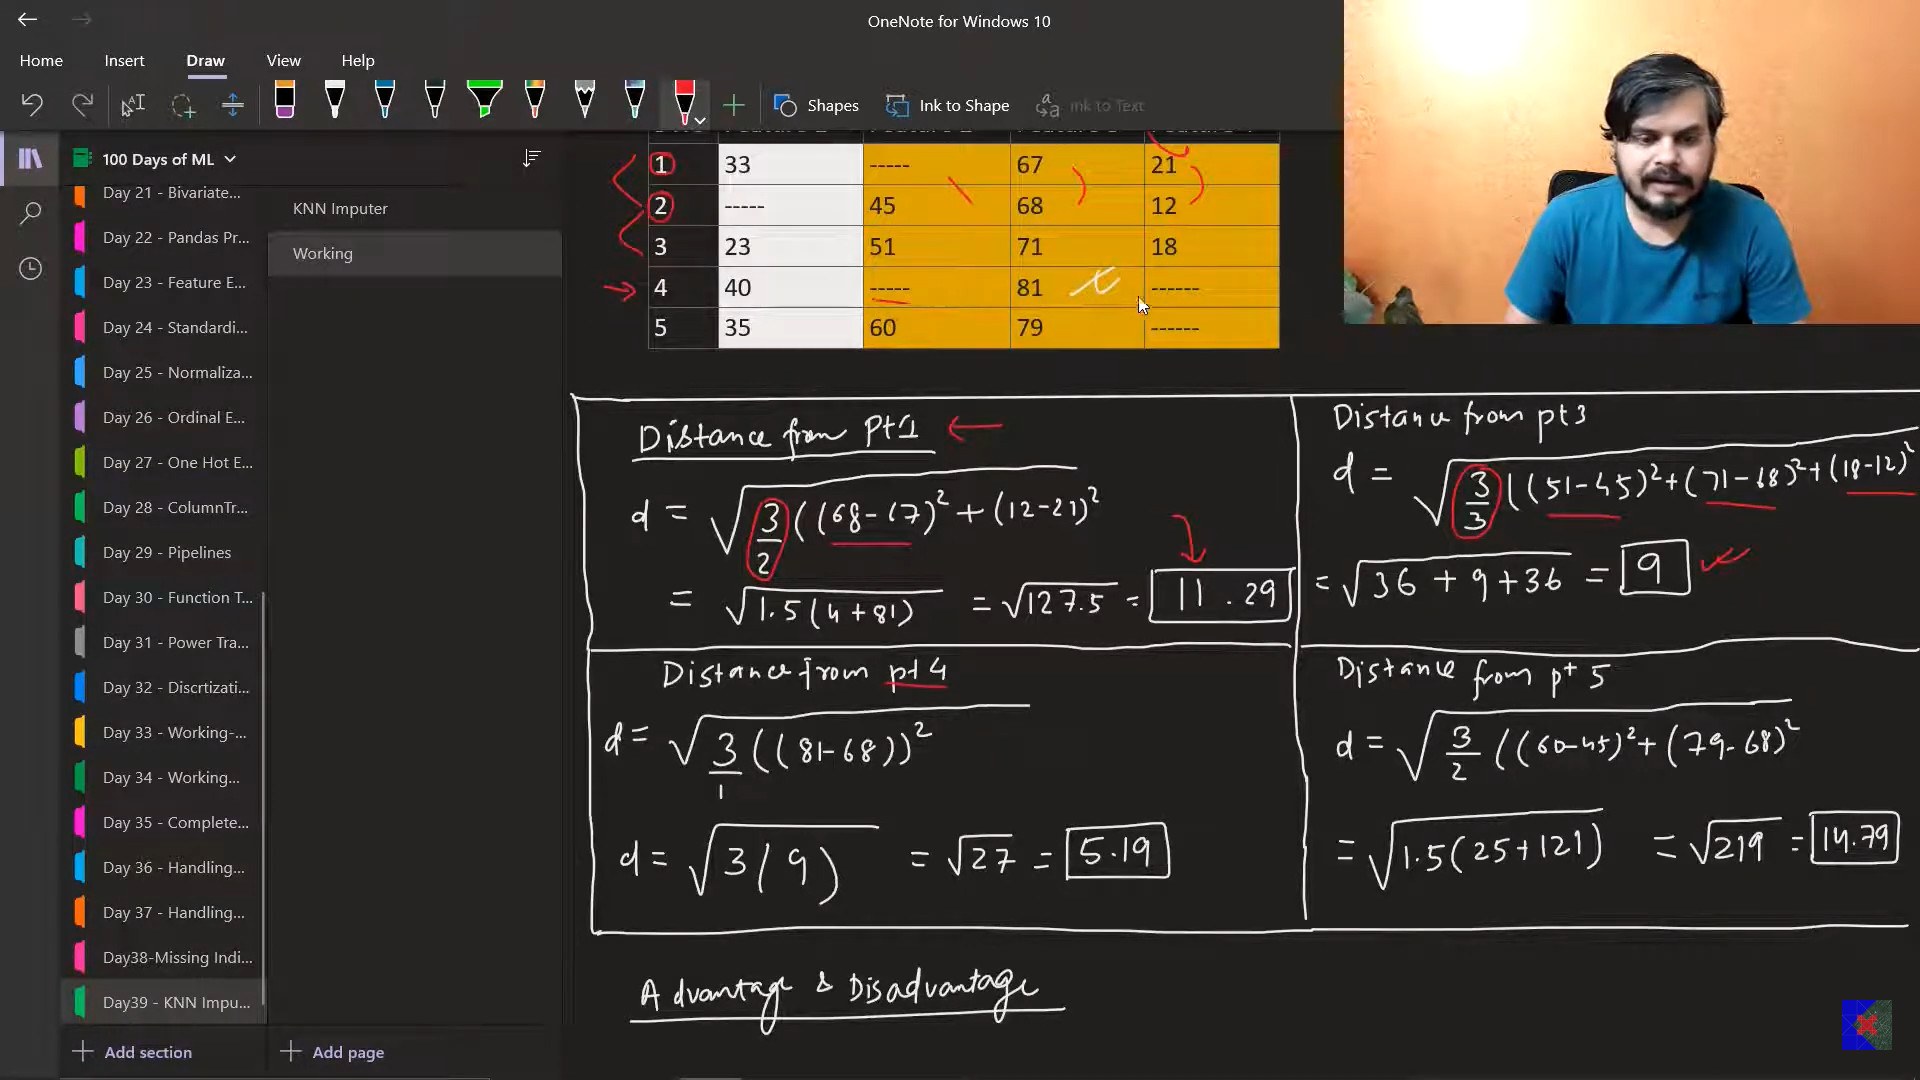 OneNote for Windows 10
Home Insert Draw View Help
Shapes Ink to Shape Ink to Text
100 Days of ML
Day 21 - Bivariate...
Day 22 - Pandas Pr...
Day 23 - Feature E...
Day 24 - Standardi...
Day 25 - Normaliza...
Day 26 - Ordinal E...
Day 27 - One Hot E...
Day 28 - ColumnTr...
Day 29 - Pipelines
Day 30 - Function T...
Day 31 - Power Tra...
Day 32 - Discrtizati...
Day 33 - Working-...
Day 34 - Working...
Day 35 - Complete...
Day 36 - Handling...
Day 37 - Handling...
Day38-Missing Indi...
Day39 - KNN Impu...
Add section
KNN Imputer
Working
Add page
1 33 ----- 67 21
2 ----- 45 68 12
3 23 51 71 18
4 40 ----- 81 ------
5 35 60 79 ------
Distance from Pt1
d = √3/2 ((68-67)² + (12-21)²
= √1.5(4+81) = √127.5 = 11.29
Distance from pt3
d = √3/3 ((51-45)²+(71-68)²+(18-12)²
= √36+9+36 = 9
Distance from pt4
d = √3/1 ((81-68))²
d = √3(9) = √27 = 5.19
Distance from pt 5
d = √3/2 ((60-45)²+(79-68)²
= √1.5(25+121) = √219 = 14.79
Advantage & Disadvantage